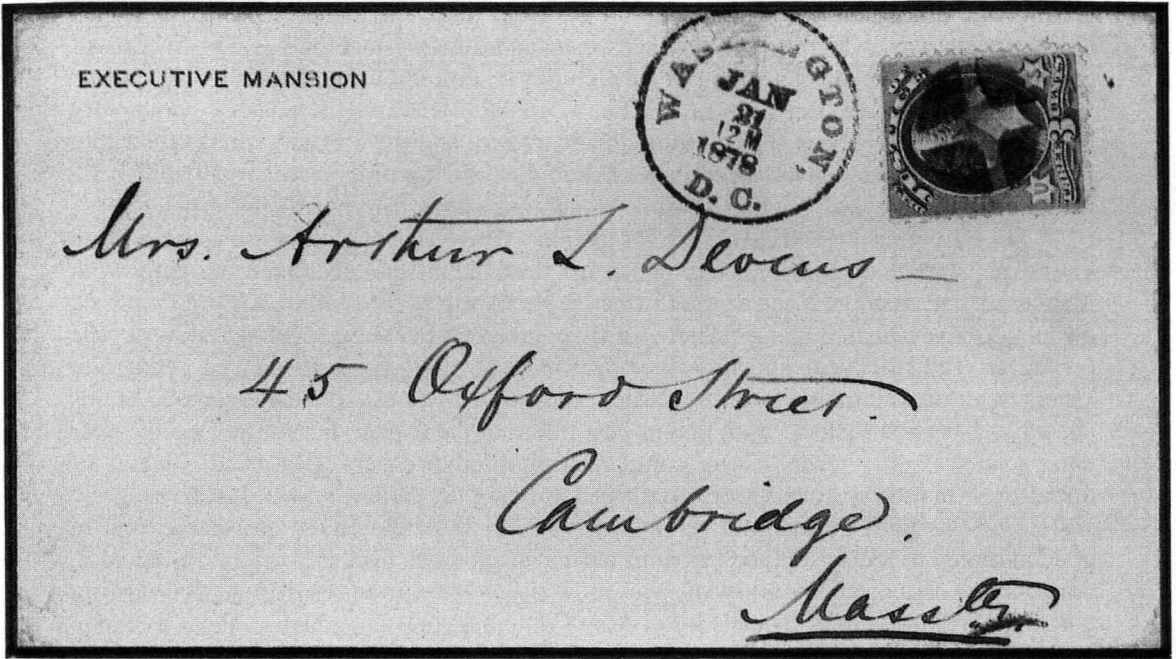 EXECUTIVE MANSION
WASHINGTON,
JAN
21
12 M
1878
D. C.
Mrs. Arthur L. Devens —
45 Oxford Street.
Cambridge.
Masstts.